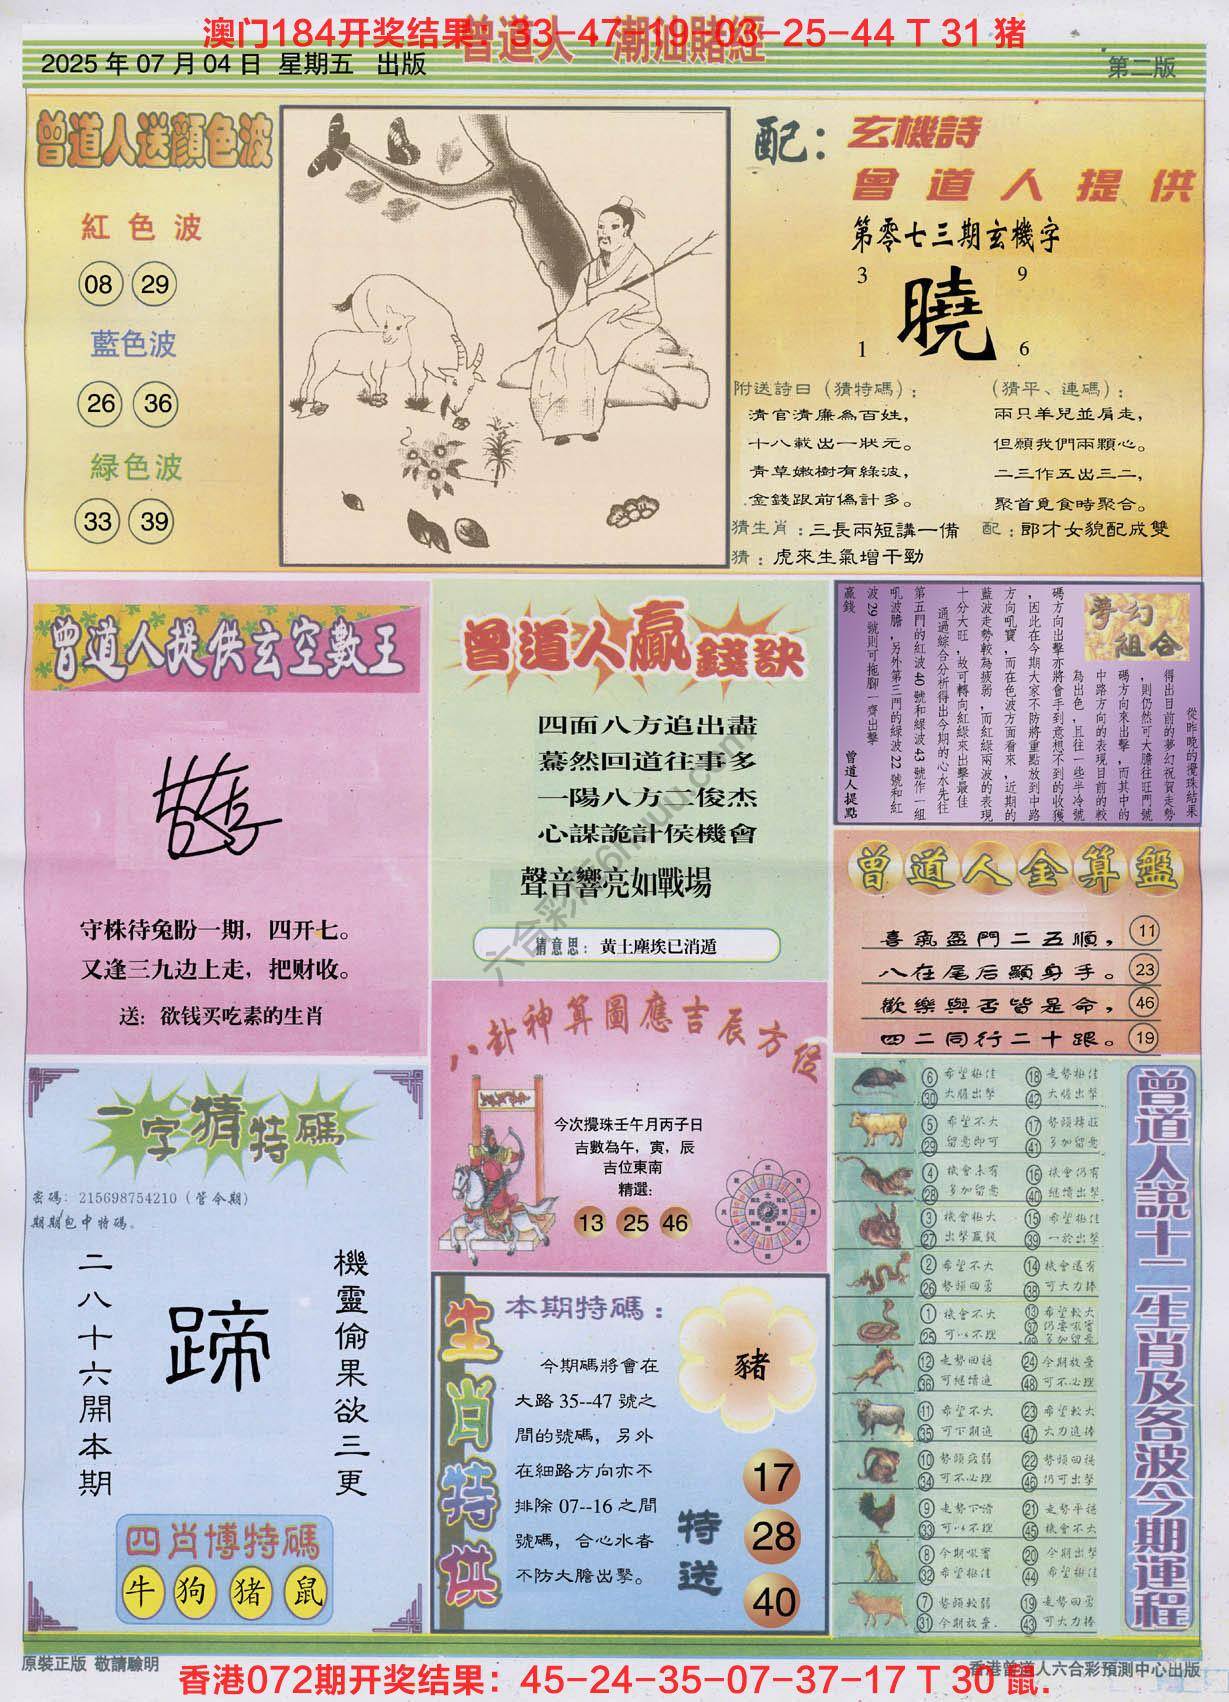 澳门184开奖结果：33-47-19-03-25-44 T 31 猪
曾道人 潮汕賭經
2025 年 07 月 04 日 星期五 出版
第二版
曾道人送顏色波
紅色波
08 29
藍色波
26 36
緑色波
33 39
配：玄機詩
曾道人提供
第零七三期玄機字
3 9
曉
1 6
附送詩曰（猜特碼）：
清官清廉為百姓，
十八載出一狀元。
青草嫩樹有綠波，
金錢跟前偽計多。
（猜平、連碼）：
兩只羊兒並肩走，
但願我們兩顆心。
二三作五出三二，
聚首覓食時聚合。
猜生肖：三長兩短講一備 配：郎才女貌配成雙
猜：虎來生氣增干勁
曾道人提供玄空數王
守株待兔盼一期，四开七。
又逢三九边上走，把财收。
送：欲钱买吃素的生肖
曾道人贏錢訣
四面八方追出盡
驀然回道往事多
一陽八方二俊杰
心謀詭計侯機會
聲音響亮如戰場
猜意思：黃土塵埃已消遁
夢幻組合
從昨晚的攪珠結果
得出目前的夢幻祝賀走勢
，則仍然可大膽往旺門號
碼方向來出擊，而其中的
中路方向的表現目前的較
為出色，且往一些半冷號
碼方向出擊亦將會手到意想不到的收獲
，因此在今期大家不防將重點放到中路
方向吼寶，而在色波方面看來，近期的
藍波走勢較為疲弱，而紅綠兩波的表現
十分大旺，故可轉向紅綠來出擊最佳
通過綜合分析得出今期的心水先往
第五門的紅波40號和綠波43號作一組
吼波膽，另外第三門的綠波22號和紅
波29號則可拖腳一齊出擊
贏錢
曾道人提點
曾道人金算盤
喜氣盈門二五順， 11
八在尾后顯身手。 23
歡樂與否皆是命， 46
四二同行二十跟。 19
八卦神算圖應吉辰方位
今次攪珠壬午月丙子日
吉數為午，寅，辰
吉位東南
精選:
13 25 46
一字猜特碼
密碼：215698754210（管今期）
期期包中特碼。
機靈偷果欲三更
蹄
二八十六開本期
四肖博特碼
牛 狗 猪 鼠
生肖特供
本期特碼：
豬
今期碼將會在
大路 35--47 號之
間的號碼，另外
在細路方向亦不
排除 07--16 之間
號碼，合心水者
不防大膽出擊。
特送
17
28
40
曾道人說十二生肖及各波今期運程
6 希望極佳 18 走勢極佳
30 大膽出擊 42 大膽出擊
5 希望不大 17 勢頭精莊
29 留意即可 41 多加留意
4 機會未有 16 機會仍有
28 多加留意 40 繼續出擊
3 機會極大 15 希望極佳
27 出擊贏錢 39 一於出擊
2 希望不大 14 機會還有
26 勢頭回勇 38 可大力捧
1 機會不大 13 希望較大
37 仍要吼實
25 可以不理 49 多加留意
12 走勢回穩 24 今期放棄
36 可繼續進 48 可不必理
11 希望不大 23 希望較大
35 可下期進 47 大力進捧
10 勢頭疲弱 22 勢頭回穩
34 可不必理 46 仍可出擊
9 走勢下滑 21 走勢平穩
33 可以不理 45 機會不大
8 今期吼實 20 今期出擊
32 希望極佳 44 希望極佳
7 勢頭較弱 19 走勢回勇
31 今期放棄. 43 可大力捧
六合彩
原裝正版 敬請驗明
香港072期开奖结果：45-24-35-07-37-17 T 30 鼠.
香港曾道人六合彩預測中心出版